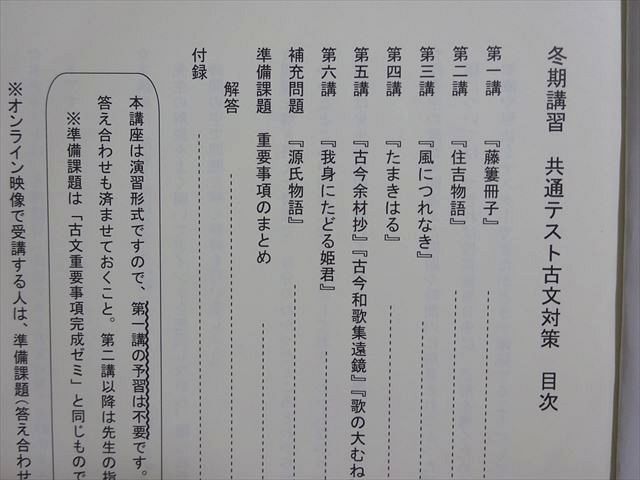 冬期講習　共通テスト古文対策　目次
第一講　『藤簍冊子』
第二講　『住吉物語』
第三講　『風につれなき』
第四講　『たまきはる』
第五講　『古今余材抄』『古今和歌集遠鏡』『歌の大むね
第六講　『我身にたどる姫君』
補充問題　『源氏物語』
準備課題　重要事項のまとめ
解答
付録
本講座は演習形式ですので、第一講の予習は不要です。
答え合わせも済ませておくこと。第二講以降は先生の指
※準備課題は「古文重要事項完成ゼミ」と同じもので
※オンライン映像で受講する人は、準備課題（答え合わせ